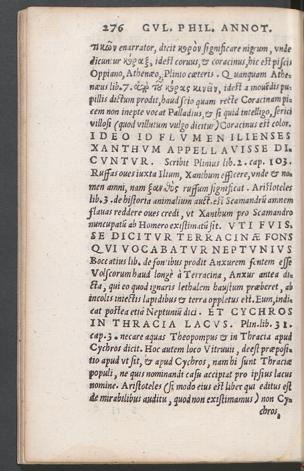 276 GVL. PHIL. ANNOT.
enarrator, dicit significare nigrum, vnde
dicuntur κόραξ, idest coruus, & coracinus, hic est piscis
Oppiano, Athenæo, Plinio cæteris. Quanquam Athe-
næus lib. 7. idest a mouẽdis pu-
pillis dictum prodit, haud scio quam recte Coracinum pi-
cem non inepte vocat Palladius, & si quid intelligo, serici
villosi (quod villutum vulgo dicitur) Coracinus est color.
IDEO ID FLVMEN ILIENSES
XANTHVM APPELLAVISSE DI-
CVNTVR. Scribit Plinius lib. 2. cap. 103.
Ruffas oues iuxta Ilium, Xanthum efficere, vnde & no-
men amni, nam ξανθὸς ruffum significat. Aristoteles
lib. 3. de historia animalium auct. est Scamandrũ amnem
flauas reddere oues credi, vt Xanthum pro Scamandro
nuncupatũ ab Homero existimatũ sit. VTI FVIS-
SE DICITVR TERRACINÆ FONS
QVI VOCABATVR NEPTVNIVS
Boccatius lib. de fontibus prodit Anxurem fontem esse
Volscorum haud longè à Terracina, Anxur antea di-
cta, qui eo quod ignaris lethalem haustum præberet, ab
incolis iniectis lapidibus & terra oppletus est. Eum, indi-
cat postea etiã Neptuniũ dici. ET CYCHROS
IN THRACIA LACVS. Plin. lib. 31.
cap. 3. necare aquas Theopompus & in Thracia apud
Cychros dicit. Hoc autem loco Vitruuii, deest præposi-
tio apud vt sit, & apud Cychros, nam hi sunt Thraciæ
populi, ne quis nominandi casu acceptat pro ipsius lacus
nomine. Aristoteles (si modo eius est liber qui editus est
de mirabilibus auditu, quod non existimamus) non Cy-
chros,